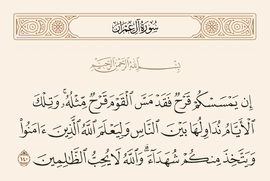 سُورَةُ آلِ عِمْرَانَ
بِسْمِ اللَّهِ الرَّحْمَٰنِ الرَّحِيمِ
إِن يَمْسَسْكُمْ قَرْحٌ فَقَدْ مَسَّ الْقَوْمَ قَرْحٌ مِّثْلُهُ ۚ وَتِلْكَ
الْأَيَّامُ نُدَاوِلُهَا بَيْنَ النَّاسِ وَلِيَعْلَمَ اللَّهُ الَّذِينَ ءَامَنُوا
وَيَتَّخِذَ مِنكُمْ شُهَدَاءَ ۗ وَاللَّهُ لَا يُحِبُّ الظَّالِمِينَ ١٤٠